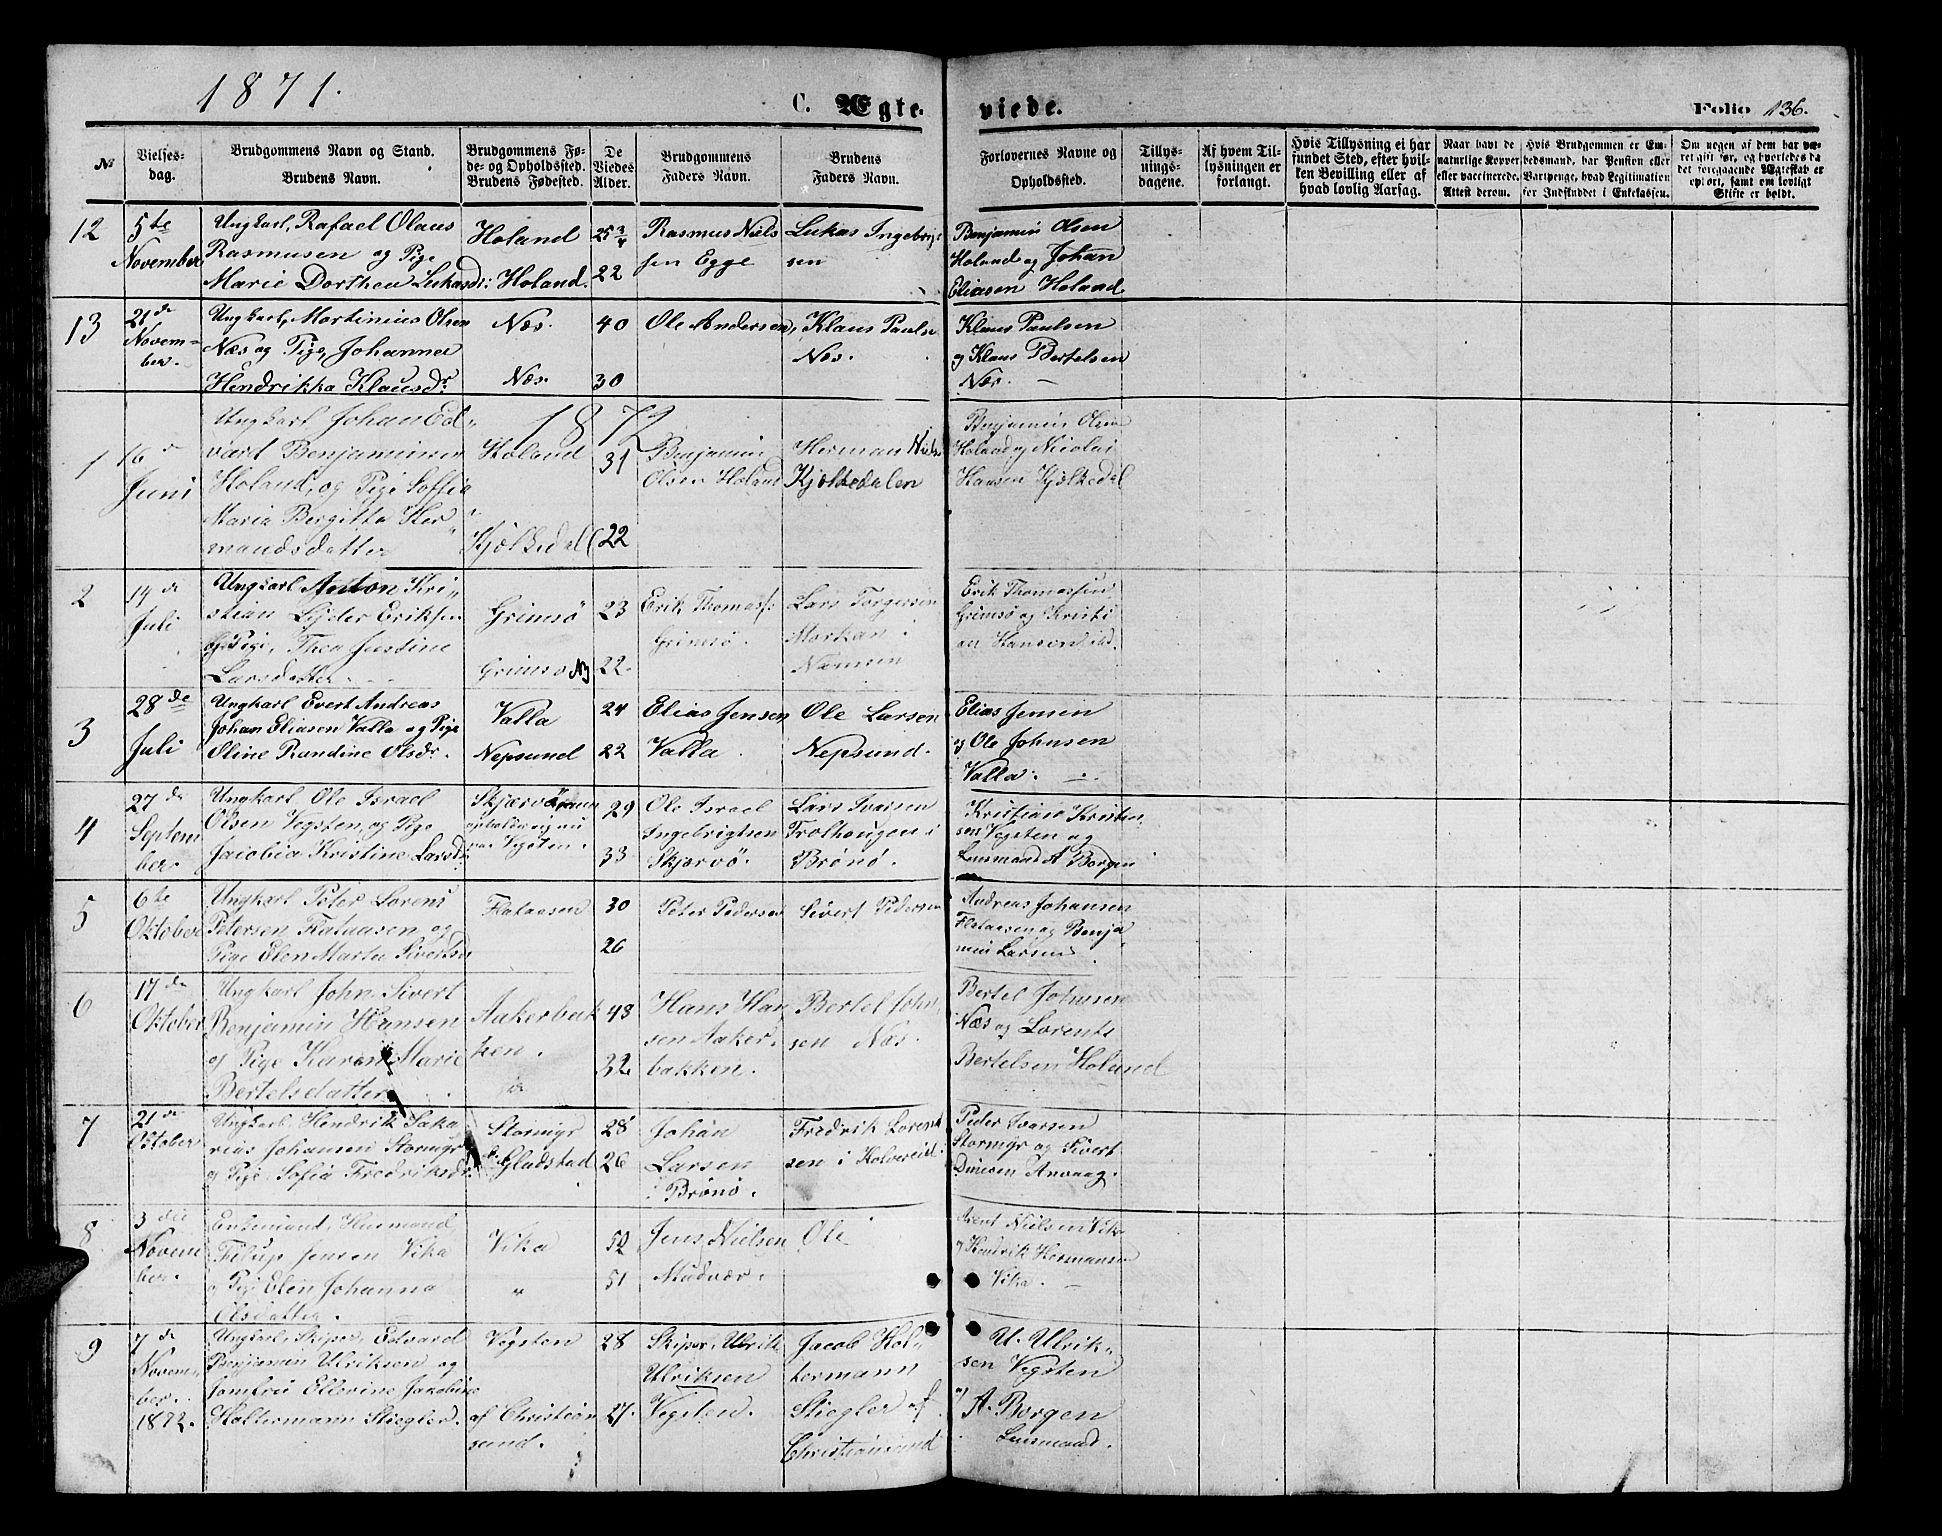 1871.
C. Ægte-
viede.
Folio 136.
№
Vielses-
dag.
Brudgommens Navn og Stand.
Brudens Navn.
Brudgommens Fø-
de- og Opholdssted.
Brudens Fødested.
De
Viedes
Alder.
Brudgommens
Faders Navn.
Brudens
Faders Navn.
Forlovernes Navne og
Opholdssted.
Tillys-
nings-
dagene.
Af hvem Til-
lysningen er
forlangt.
Hvis Tillysning ei har
fundet Sted, efter hvil-
ken Bevilling eller af
hvad lovlig Aarsag.
Naar havt de
naturlige Kopper
eller vaccinerede.
Attest derom.
Hvis Brudgommen er Em-
bedsmand, har Pension eller
Vartpenge, hvad Legitimation
for Indskuddet i Enkekassen.
Om nogen af dem har væ-
ret gift før, og hvorledes da
det foregaaende Ægteskab er
ophørt, samt om lovligt
Skifte er holdt.
12
5te
November
Ungkarl, Rafael Olaus
Rasmusen og Pige
Marie Dorthea Lukasd:
Holand
Holand.
25 3/4
22
Rasmus Niels
sen Egge
Lukas Ingebrigt
sen
Benjamin Olsen
Holand og Johan
Eliasen Holand
13
21de
Novem-
ber.
Ungkarl, Martinius Olsen
Næs og Pige, Johanna
Hendrikka Klausdr
Næs.
Næs.
40
30
Ole Andersen,
Klaus Pauls
Næs.
Klaus Paulsen
og Klaus Bertelsen
Næs. —
1872
1
16de
Juni
Ungkarl Johan Ed-
vart Benjaminsen
Holand, og Pige Soffia
Maria Bergitta Her-
mandsdatter
Holand
Kjølkedal
31
22
Benjamin
Olsen Holand
Herman Niels
Kjølkedalen
Benjamin Olsen
Holand og Nicolai
Hansen Kjølkedal
2
14de
Juli
Ungkarl Anton Kri-
stian Lyder Eriksen
og Pige, Thea Justine
Larsdatter
Grimsø
Grimsø
23
22.
Erik Thomass.
Grimsø.
Lars Torgersen
Markan
Namsen
Erik Thomassen
Grimsø og Kristi
an Hansen ibd.
3
28de
Juli
Ungkarl Evert Andreas
Johan Eliasen Valla og Pige
Oline Randine Olsdr.
Valla
Nepsund
24
22
Elias Jensen
Valla
Ole Larsen
Nepsund.
Elias Jensen
og Ole Johnsen
Valla.
4
27de
Septem
ber.
Ungkarl Ole Israel
Olsen Vegsten, og Pige
Jacobia Kristine Larsdr
Skjærvø
Vegsten.
29
33
Ole Israel
Ingebrigtsen
Skjærvø
Lars Ivarsen
Trolhaugen i
Brønø.
Kristian Kristen
sen Vegsten og
Lensmand A Borgen
5
6te
Oktober
Ungkarl Peter Lorens
Petersen Flataasen og
Pige Elen Marta Sivertsdr
Flataasen
30
26
Peter Pedersen
Sivert Pedersen
Andreas Johansen
Flataasen og Benja
min Larsen
6
17de
Oktober
Ungkarl John Sivert
Benjamin Hansen
og Pige Karen Marie
Bertelsdatter
Aakerbak
ken.
48
32
Hans Han
sen Aaker-
bakken.
Bertel John
sen Næs.
Bertel Johnsen
Næs og Lorents
Bertelsen Holand
7
21de
Oktober
Ungkarl, Hendrik Saka
rias Johansen Stormyr
og Pige, Sofia Fredriksdr
Stormyr
Gladstad
28
26
Johan
Larsen
i Brønø.
Fredrik Lorent
sen i Holvereid.
Peder Ivarsen
Stormyr og Sivert
Dinesen Anvaag.
8
3die
Novem
ber.
Enkemand, Huusmand,
Filup Jensen Vika
og Pige Elen Johanna
Olsdatter.
Vika
"
52
51
Jens Nielsen
Mudvær.
Ole
Arent Nielsen Vika
og Hendrik Hermansen
Vika. —
9
7de
Novem-
ber.
1872.
Ungkarl, Skiper, Edvard
Benjamin Ulriksen og
Jomfru Ellerine Jakobine
Holtermann Stiegler.
Vegsten
af Christian
sund.
28
27.
Skiper, Ulrik
Ulriksen
Vegsten.
Jacob Hol-
termann
Stiegler af
Christiansund
U. Ulrik-
sen Vegsten
og A. Borgen
Lensmand.